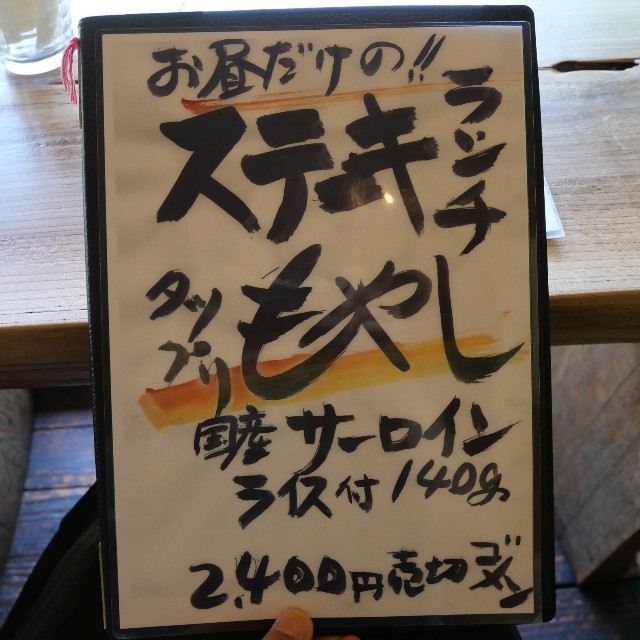 お昼だけの!!
ステーキ
ランチ
タップリ
もやし
国産サーロイン
ライス付140g
2,400円売切ゴメン